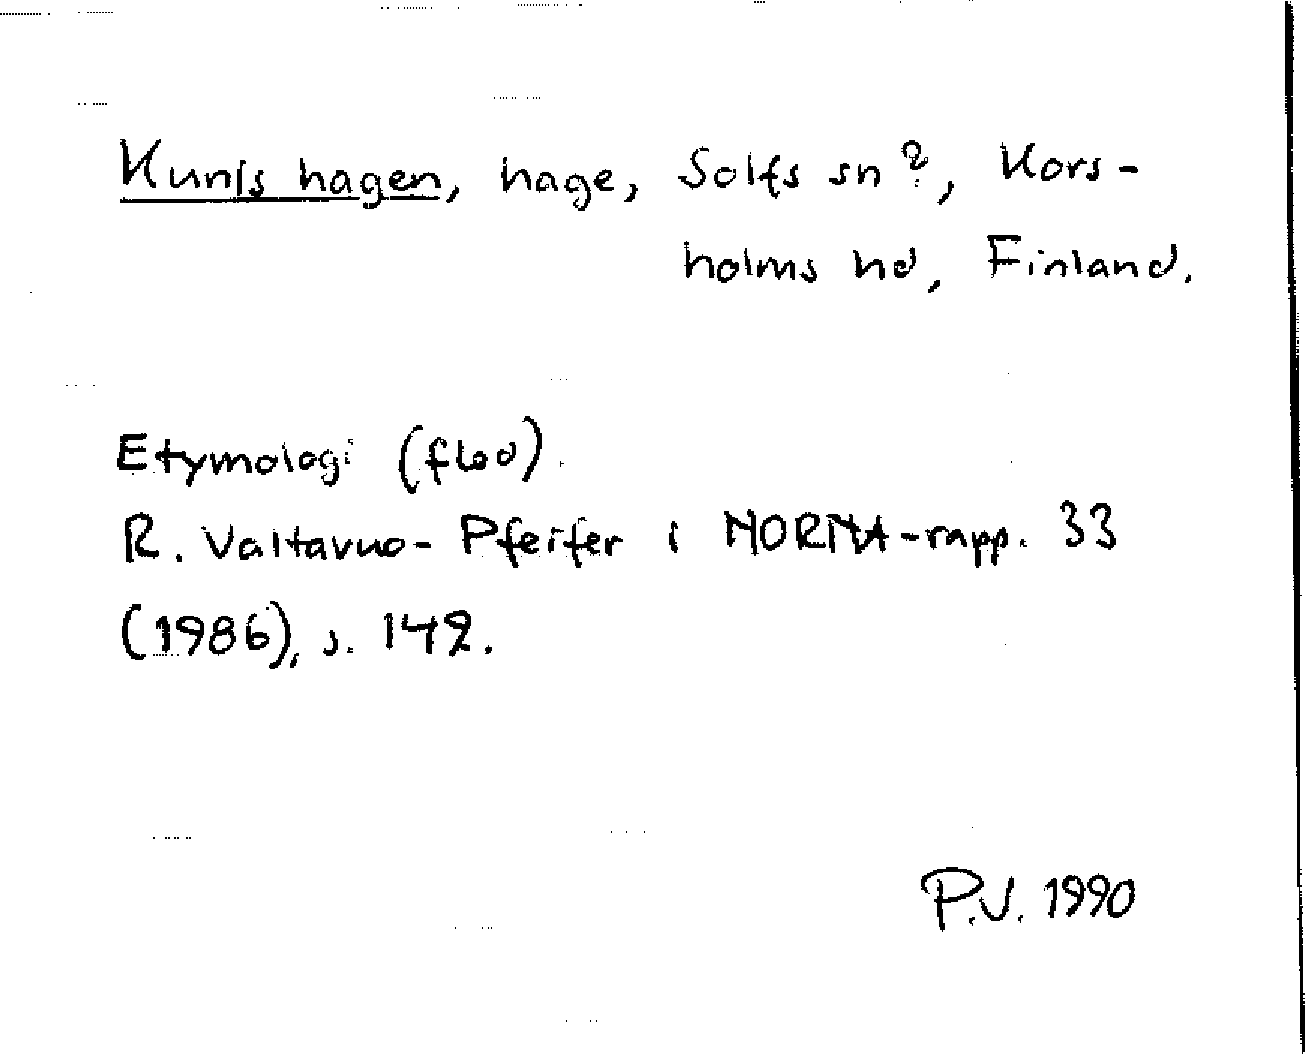 Kunls hagen, hage, Solfs sn?, Kors-
holms hd, Finland.
Etymologi (flod).
R. Valtavuo-Pfeifer i NORNA-rapp. 33
(1986), s. 142.
P.V. 1990